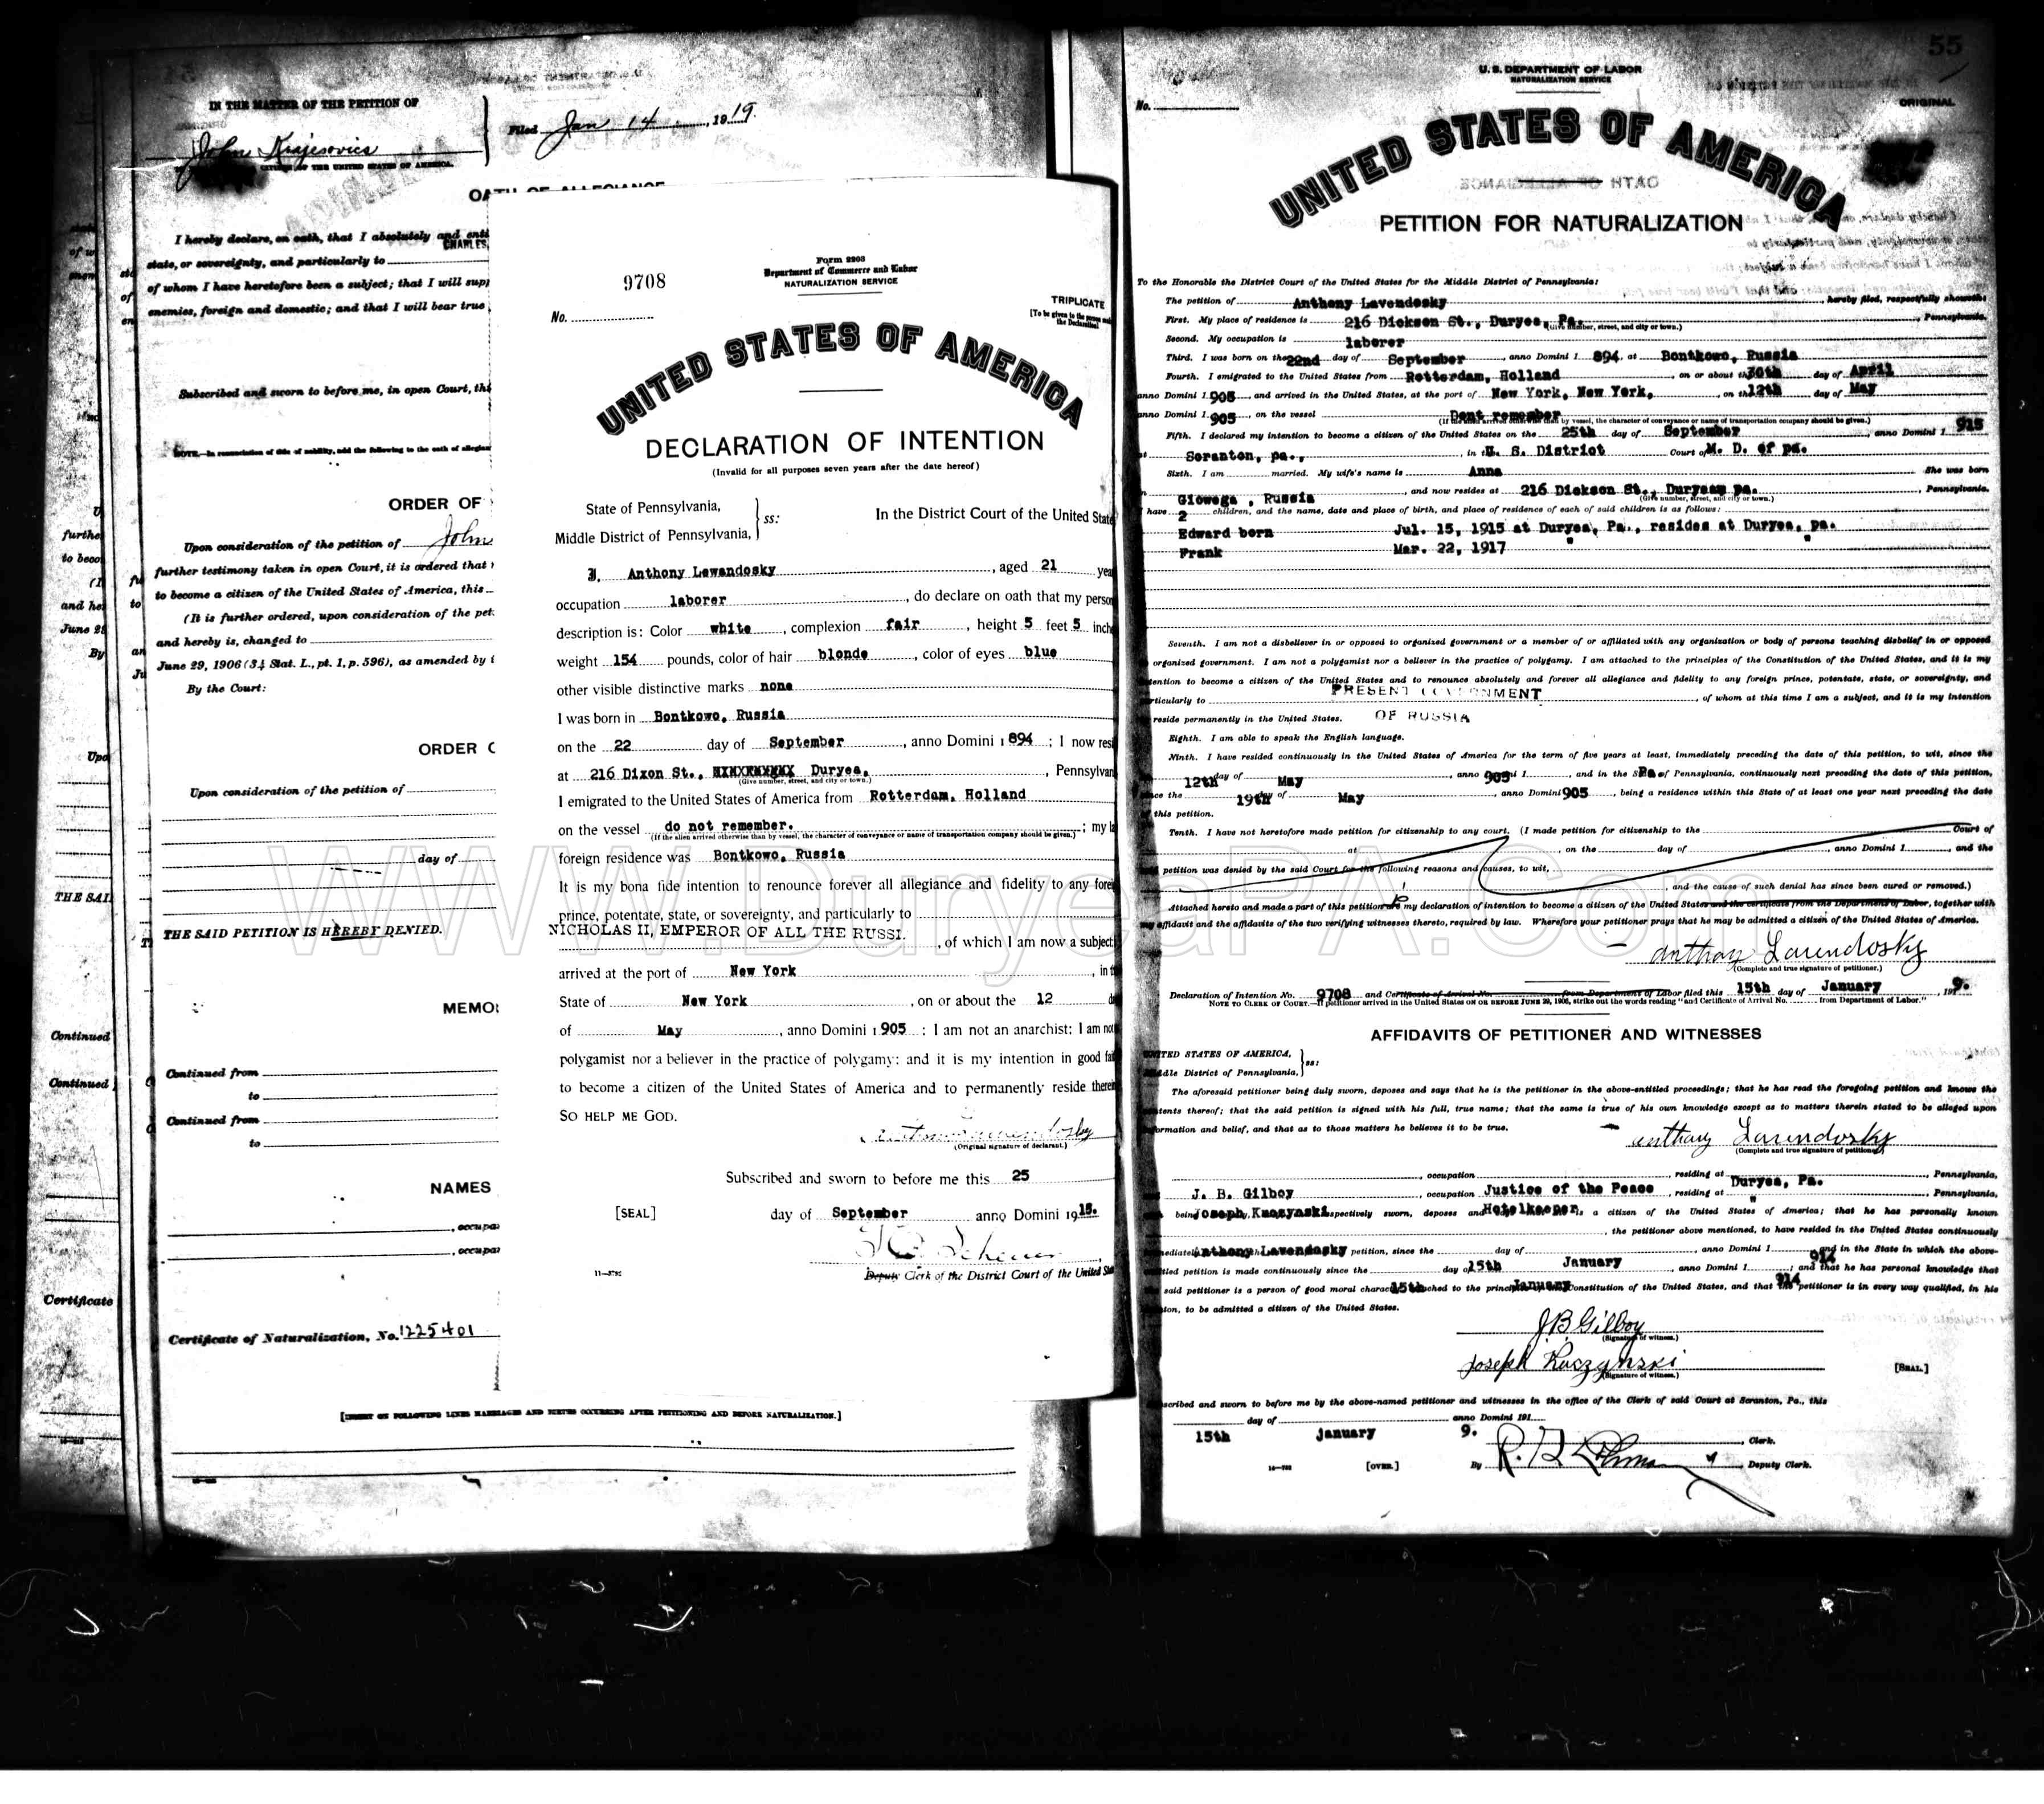 IN THE MATTER OF THE PETITION OF
John Krajesovics
OF THE UNITED STATES OF AMERICA.
Filed Jan 14, 1919.
OATH OF ALLEGIANCE
I hereby declare, on oath, that I absolutely and enti
CHARLES,
state, or sovereignty, and particularly to
of whom I have heretofore been a subject; that I will supp
enemies, foreign and domestic; and that I will bear true
Subscribed and sworn to before me, in open Court, thi
NOTE.—In renunciation of title of nobility, add the following to the oath of allegian
ORDER OF
Upon consideration of the petition of John
further testimony taken in open Court, it is ordered that
to become a citizen of the United States of America, this
(It is further ordered, upon consideration of the pet
and hereby is, changed to
June 29, 1906 (34 Stat. L., pt. 1, p. 596), as amended by
By the Court:
ORDER
Upon consideration of the petition of
day of
THE SAID PETITION IS HEREBY DENIED.
MEMO
Continued from
to
Continued from
to
NAMES
, occupa
, occupa
Certificate of Naturalization, No. 1225401
[INSERT ON FOLLOWING LINES MARRIAGES AND BIRTHS OCCURRING AFTER PETITIONING AND BEFORE NATURALIZATION.]
THE SAI
Continued
Continued
Certificate
9708
Form 2203
Department of Commerce and Labor
NATURALIZATION SERVICE
No.
TRIPLICATE
[To be given to the person
the Declaration]
UNITED STATES OF AMERICA
DECLARATION OF INTENTION
(Invalid for all purposes seven years after the date hereof)
State of Pennsylvania,
Middle District of Pennsylvania,
ss:
In the District Court of the United State
I, Anthony Lewandosky, aged 21 yea
occupation laborer, do declare on oath that my person
description is: Color white, complexion fair, height 5 feet 5 inch
weight 154 pounds, color of hair blonde, color of eyes blue
other visible distinctive marks none
I was born in Bontkowo, Russia
on the 22 day of September, anno Domini 1894; I now resi
at 216 Dixon St., Duryea, Pennsylvan
(Give number, street, and city or town.)
I emigrated to the United States of America from Rotterdam, Holland
on the vessel do not remember.; my la
(If the alien arrived otherwise than by vessel, the character of conveyance or name of transportation company should be given.)
foreign residence was Bontkowo, Russia
It is my bona fide intention to renounce forever all allegiance and fidelity to any forei
prince, potentate, state, or sovereignty, and particularly to
NICHOLAS II, EMPEROR OF ALL THE RUSSI., of which I am now a subject;
arrived at the port of New York, in th
State of New York, on or about the 12 d
of May, anno Domini 1905; I am not an anarchist; I am not
polygamist nor a believer in the practice of polygamy; and it is my intention in good fai
to become a citizen of the United States of America and to permanently reside therein
SO HELP ME GOD.
(Original signature of declarant.)
Subscribed and sworn to before me this 25
[SEAL] day of September anno Domini 1915.
Deputy Clerk of the District Court of the United Sta
55
U. S. DEPARTMENT OF LABOR
NATURALIZATION SERVICE
No.
ORIGINAL
UNITED STATES OF AMERICA
PETITION FOR NATURALIZATION
To the Honorable the District Court of the United States for the Middle District of Pennsylvania:
The petition of Anthony Lavendosky, hereby filed, respectfully showeth:
First. My place of residence is 216 Dickson St., Duryea, Pa., Pennsylvania.
(Give number, street, and city or town.)
Second. My occupation is laborer
Third. I was born on the 22nd day of September, anno Domini 1894, at Bontkowo, Russia
Fourth. I emigrated to the United States from Rotterdam, Holland, on or about the 30th day of April
anno Domini 1905, and arrived in the United States, at the port of New York, New York, on the 12th day of May
anno Domini 1905, on the vessel Dont remember
(If the alien arrived otherwise than by vessel, the character of conveyance or name of transportation company should be given.)
Fifth. I declared my intention to become a citizen of the United States on the 25th day of September, anno Domini 1915
Scranton, pa., in the U. S. District Court of M. D. of pa.
Sixth. I am married. My wife's name is Anna She was born
Glowega, Russia, and now resides at 216 Dickson St., Duryea, pa., Pennsylvania.
(Give number, street, and city or town.)
have 2 children, and the name, date and place of birth, and place of residence of each of said children is as follows:
Edward born Jul. 15, 1915 at Duryea, Pa., resides at Duryea, pa.
Frank Mar. 22, 1917 " "
Seventh. I am not a disbeliever in or opposed to organized government or a member of or affiliated with any organization or body of persons teaching disbelief in or opposed
organized government. I am not a polygamist nor a believer in the practice of polygamy. I am attached to the principles of the Constitution of the United States, and it is my
intention to become a citizen of the United States and to renounce absolutely and forever all allegiance and fidelity to any foreign prince, potentate, state, or sovereignty, and
particularly to PRESENT GOVERNMENT, of whom at this time I am a subject, and it is my intention
reside permanently in the United States. OF RUSSIA
Eighth. I am able to speak the English language.
Ninth. I have resided continuously in the United States of America for the term of five years at least, immediately preceding the date of this petition, to wit, since the
12th day of May, anno 1905, and in the State of Pennsylvania, continuously next preceding the date of this petition,
since the 19th day of May, anno Domini 1905, being a residence within this State of at least one year next preceding the date
of this petition.
Tenth. I have not heretofore made petition for citizenship to any court. (I made petition for citizenship to the Court of
at, on the day of, anno Domini 1, and the
petition was denied by the said Court for the following reasons and causes, to wit,
, and the cause of such denial has since been cured or removed.)
Attached hereto and made a part of this petition are my declaration of intention to become a citizen of the United States and the certificate from the Department of Labor, together with
my affidavit and the affidavits of the two verifying witnesses thereto, required by law. Wherefore your petitioner prays that he may be admitted a citizen of the United States of America.
Anthony Lavendosky
(Complete and true signature of petitioner.)
Declaration of Intention No. 9708 and Certificate of Arrival No. from Department of Labor filed this 15th day of January, 1919.
NOTE TO CLERK OF COURT.—If petitioner arrived in the United States ON OR BEFORE JUNE 29, 1906, strike out the words reading "and Certificate of Arrival No. from Department of Labor."
AFFIDAVITS OF PETITIONER AND WITNESSES
UNITED STATES OF AMERICA,
Middle District of Pennsylvania,
ss:
The aforesaid petitioner being duly sworn, deposes and says that he is the petitioner in the above-entitled proceedings; that he has read the foregoing petition and knows the
contents thereof; that the said petition is signed with his full, true name; that the same is true of his own knowledge except as to matters therein stated to be alleged upon
information and belief, and that as to those matters he believes it to be true.
Anthony Lavendosky
(Complete and true signature of petitioner.)
, occupation, residing at, Pennsylvania,
J. B. Gilboy, occupation Justice of the Peace, residing at Duryea, Pa., Pennsylvania,
being Joseph Kuczynski respectively sworn, deposes and Hotelkeeper is a citizen of the United States of America; that he has personally known
, the petitioner above mentioned, to have resided in the United States continuously
immediately Anthony Lavendosky petition, since the day of, anno Domini 1, and in the State in which the above-
entitled petition is made continuously since the day of 15th January, anno Domini 1 914; and that he has personal knowledge that
said petitioner is a person of good moral character 15th attached to the principles January Constitution of the United States, and that 914 petitioner is in every way qualified, in his
opinion, to be admitted a citizen of the United States.
J.B Gilboy
(Signature of witness.)
Joseph Kuczynski
(Signature of witness.)
[SEAL.]
Subscribed and sworn to before me by the above-named petitioner and witnesses in the office of the Clerk of said Court at Scranton, Pa., this
day of anno Domini 191
15th January 9.
, Clerk.
[OVER.]
By, Deputy Clerk.
WWW.DuryeaPA.Com